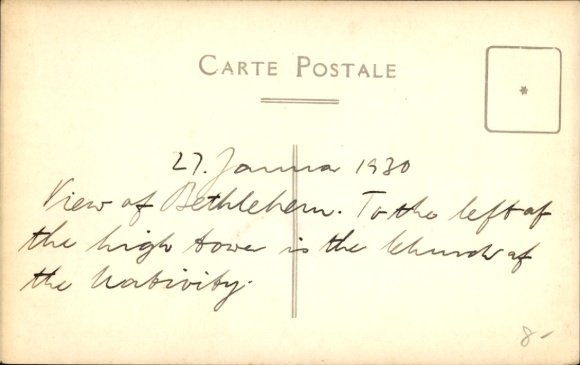 CARTE POSTALE
27. Janua 1930
View of Bethlehem. To the left of
the high tower is the Church of
the Nativity.
8-